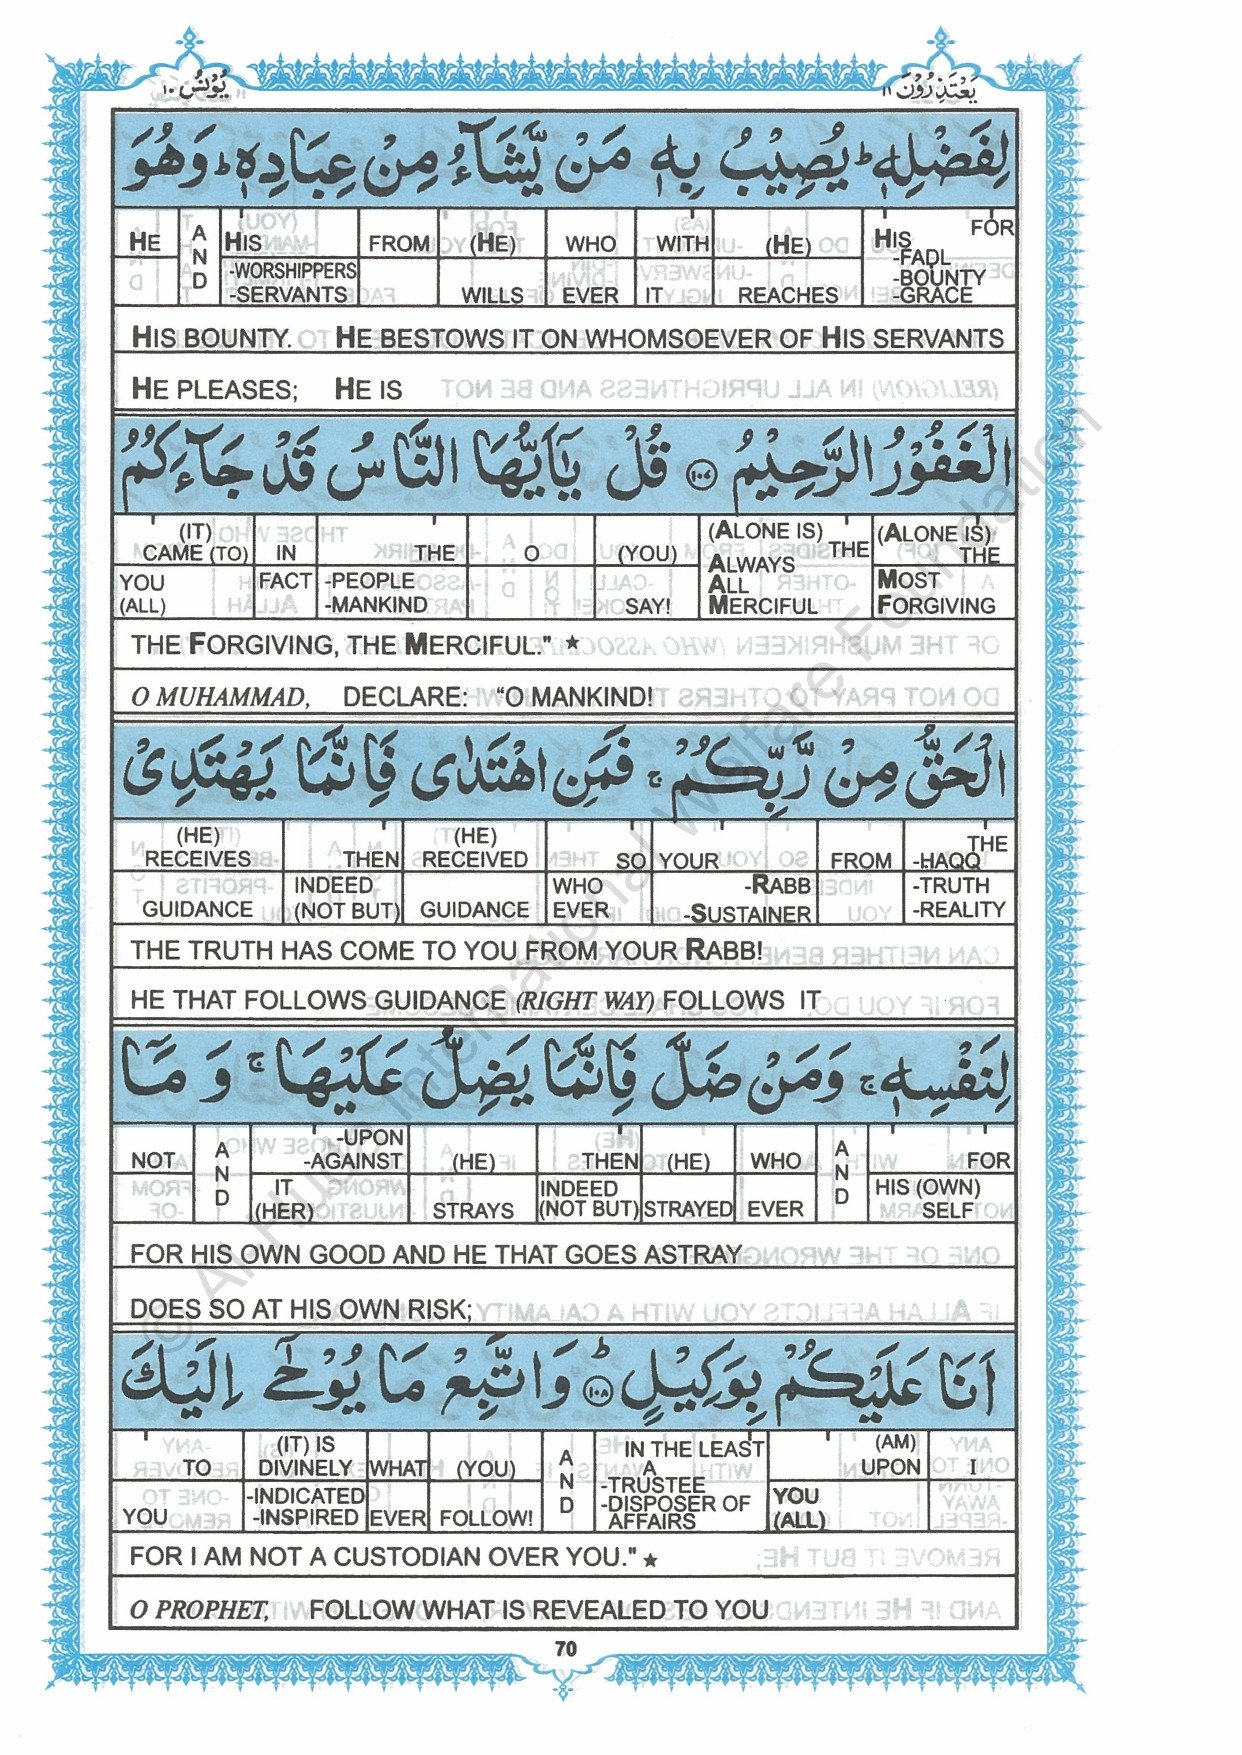 يَعْتَذِرُوْنَ ١١
يُوْنُسُ ١٠
لِفَضْلِهٖ ؕ يُصِيْبُ بِهٖ مَنْ يَّشَآءُ مِنْ عِبَادِهٖ ؕ وَهُوَ
FOR HIS -FADL -BOUNTY -GRACE
(HE) REACHES
WITH IT
WHO EVER
(HE) WILLS
FROM
HIS -WORSHIPPERS -SERVANTS
AND
HE
HIS BOUNTY. HE BESTOWS IT ON WHOMSOEVER OF HIS SERVANTS
HE PLEASES; HE IS
الْغَفُوْرُ الرَّحِيْمُ ۝ قُلْ يٰۤاَيُّهَا النَّاسُ قَدْ جَآءَكُمُ
(ALONE IS) THE MOST FORGIVING
(ALONE IS) THE ALWAYS ALL MERCIFUL
(YOU) SAY!
O
THE -PEOPLE -MANKIND
IN FACT
(IT) CAME (TO) YOU (ALL)
THE FORGIVING, THE MERCIFUL." ★
O MUHAMMAD, DECLARE: "O MANKIND!
الْحَقُّ مِنْ رَّبِّكُمْ ۚ فَمَنِ اهْتَدٰى فَاِنَّمَا يَهْتَدِىْ
THE -HAQQ -TRUTH -REALITY
FROM
YOUR -RABB -SUSTAINER
SO WHO EVER
(HE) RECEIVED GUIDANCE
THEN INDEED (NOT BUT)
(HE) RECEIVES GUIDANCE
THE TRUTH HAS COME TO YOU FROM YOUR RABB!
HE THAT FOLLOWS GUIDANCE (RIGHT WAY) FOLLOWS IT
لِنَفْسِهٖ ۚ وَمَنْ ضَلَّ فَاِنَّمَا يَضِلُّ عَلَيْهَا ۚ وَ مَاۤ
FOR HIS (OWN) SELF
AND
WHO EVER
(HE) STRAYED
THEN INDEED (NOT BUT)
(HE) STRAYS
-UPON -AGAINST IT (HER)
AND
NOT
FOR HIS OWN GOOD AND HE THAT GOES ASTRAY
DOES SO AT HIS OWN RISK;
اَنَا عَلَيْكُمْ بِوَكِيْلٍ ؕ ۝١٠٨ وَاتَّبِعْ مَا يُوْحٰۤى اِلَيْكَ
I
(AM) UPON YOU (ALL)
IN THE LEAST A -TRUSTEE -DISPOSER OF AFFAIRS
AND
(YOU) FOLLOW!
WHAT EVER
(IT) IS DIVINELY -INDICATED -INSPIRED
TO YOU
FOR I AM NOT A CUSTODIAN OVER YOU." ★
O PROPHET, FOLLOW WHAT IS REVEALED TO YOU
70
© Al-Huda International Welfare Foundation